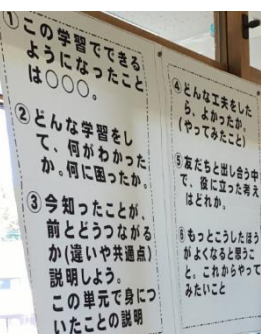 ①この学習でできる
ようになったこと
は○○○。
②どんな学習をし
て、何がわかった
か。何に困ったか。
③今知ったことが、
前とどうつながる
か(違いや共通点)
説明しよう。
この単元で身につ
いたことの説明
④どんな工夫をした
ら、よかったか。
(やってみたこと)
⑤友だちと出し合う中
で、役に立った考え
はどれか。
⑥もっとこうしたほう
がよくなると思うこ
と、これからやって
みたいこと